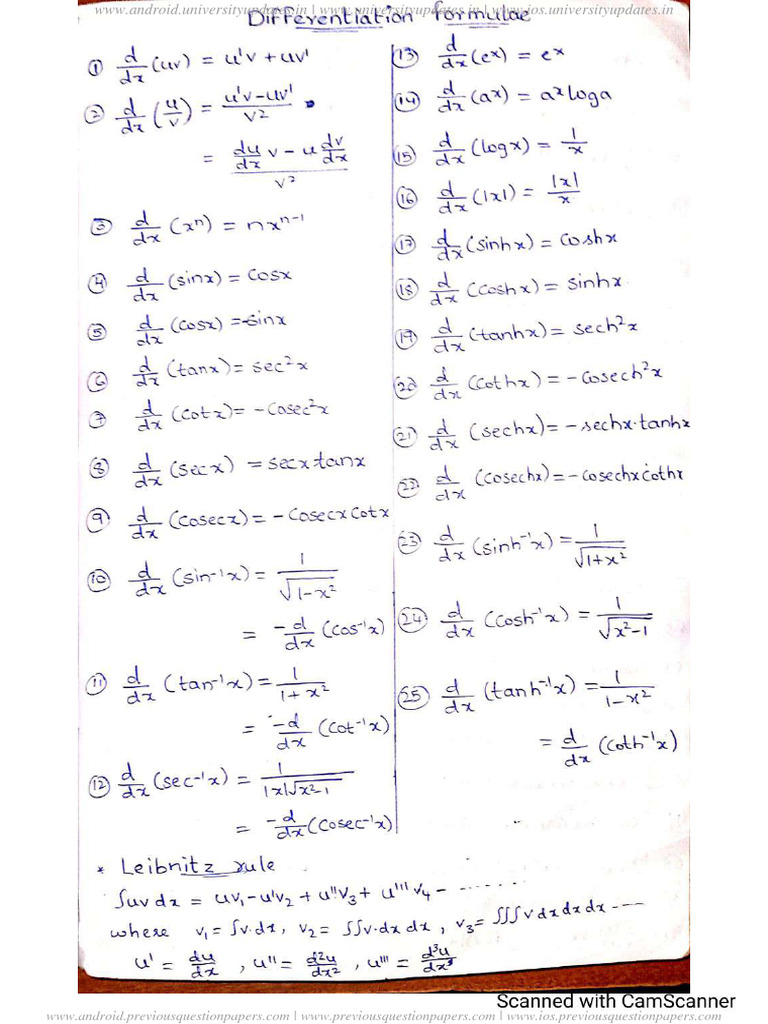 www.android.universityupdates.in | www.universityupdates.in | www.ios.universityupdates.in
Differentiation formulae
① d/dx (uv) = u'v + uv'
② d/dx (u/v) = (u'v - uv')/v²
= (du/dx v - u dv/dx)/v²
③ d/dx (xⁿ) = nxⁿ⁻¹
④ d/dx (sinx) = cosx
⑤ d/dx (cosx) = -sinx
⑥ d/dx (tanx) = sec²x
⑦ d/dx (cotx) = -cosec²x
⑧ d/dx (secx) = secx tanx
⑨ d/dx (cosecx) = -cosecx cotx
⑩ d/dx (sin⁻¹x) = 1/√(1-x²)
= -d/dx (cos⁻¹x)
⑪ d/dx (tan⁻¹x) = 1/(1+x²)
= -d/dx (cot⁻¹x)
⑫ d/dx (sec⁻¹x) = 1/(|x|√(x²-1))
= -d/dx (cosec⁻¹x)
⑬ d/dx (eˣ) = eˣ
⑭ d/dx (aˣ) = aˣ loga
⑮ d/dx (logx) = 1/x
⑯ d/dx (|x|) = |x|/x
⑰ d/dx (sinhx) = coshx
⑱ d/dx (coshx) = sinhx
⑲ d/dx (tanhx) = sech²x
⑳ d/dx (cothx) = -cosech²x
㉑ d/dx (sechx) = -sechx·tanhx
㉒ d/dx (cosechx) = -cosechx·cothx
㉓ d/dx (sinh⁻¹x) = 1/√(1+x²)
㉔ d/dx (cosh⁻¹x) = 1/√(x²-1)
㉕ d/dx (tanh⁻¹x) = 1/(1-x²)
= d/dx (coth⁻¹x)
* Leibnitz rule
∫uv dx = uv₁ - u'v₂ + u''v₃ + u'''v₄ - ......
where v₁ = ∫v·dx, v₂ = ∫∫v·dx dx, v₃ = ∫∫∫v dx dx dx ----
u' = du/dx, u'' = d²u/dx², u''' = d³u/dx³
Scanned with CamScanner
www.android.previousquestionpapers.com | www.previousquestionpapers.com | www.ios.previousquestionpapers.com